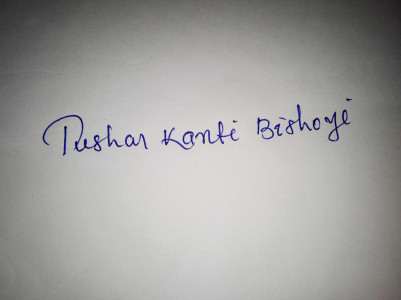 Tushar Kanti Bishoyi